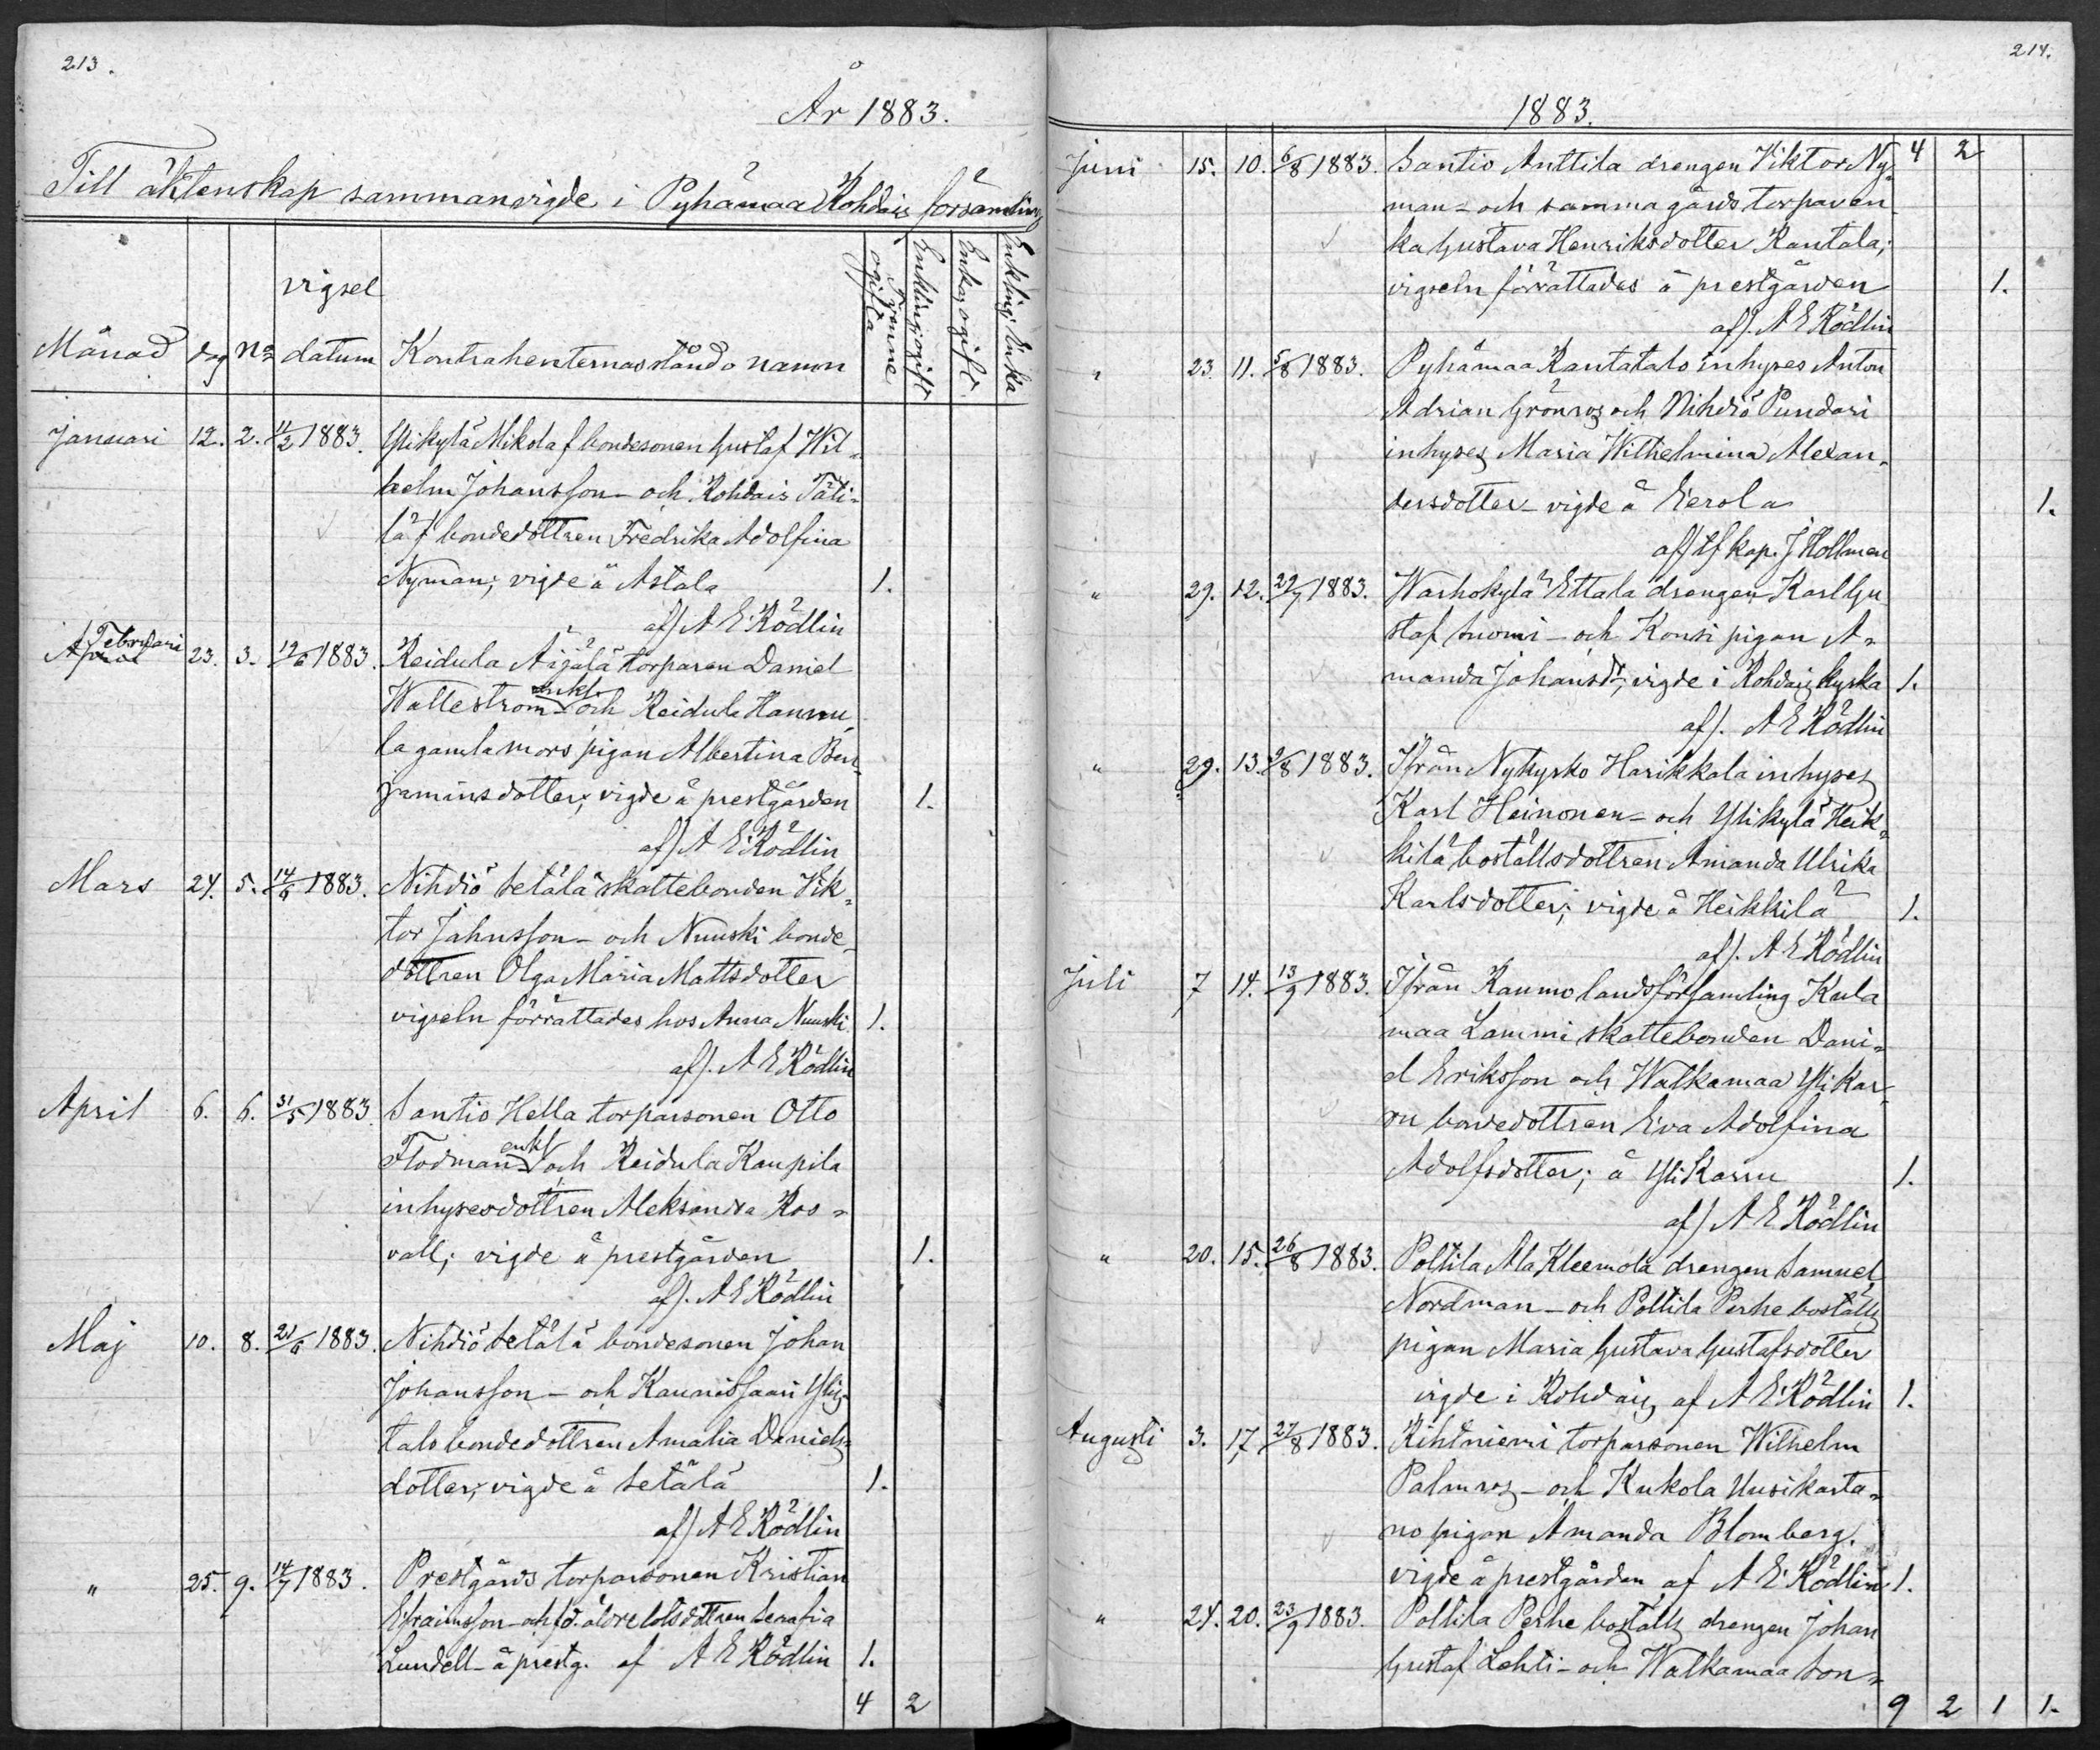 213.
År 1883.
Till äktenskap sammanvigde i Pyhämaa Rohdais församling
Månad dag No vigsel datum Kontrahenternas stånd o namn Tvenne ogifta Enkling, ogift Enka, ogift Enkling, Enka
Januari 12. 2. 11/2 1883. Ylikylä Mikola f bondesonen Gustaf Wil-
helm Johansson - och Rohdais Täti-
lä f bondedottren Fredrika Adolfina
Nyman; vigde å Astala 1.
af) A E Rödlin
Februari 23. 3. 12/6 1883. Reidula Äijälä torparen Daniel
Wallestrom enkl. och Reidula Hannu-
la gamla mors pigan Albertina Ben-
jaminsdotter; vigde å prestgården 1.
af) A E Rödlin
Mars 24. 5. 14/6 1883. Nihdiö Setälä skattebonden Vik-
tor Jahnsson - och Nuuski bonde-
dottren Olga Maria Mattsdotter
vigseln förrättades hos Anna Nuuski 1.
af). A E Rödlin
April 6. 6. 31/5 1883. Santio Hella torparsonen Otto
Flodman enkl och Reidula Kaupila
inhysesdottren Aleksandra Ros-
vall; vigde å prestgården 1.
af). A E Rödlin
Maj 10. 8. 21/6 1883. Nihdiö Setälä bondesonen Johan
Johansson - och Kaunissaari Yli-
talo bondedottren Amalia Daniels-
dotter; vigde å Setälä 1.
af) A E Rödlin
" 25. 9. 14/7 1883. Prestgårds torparsonen Kristian
Efraimsson - och f.d. äldre lotsdottren Serafia
Lundell - å prestg. af A E Rödlin 1.
4 2
214.
1883.
4 2
Juni 15. 10. 6/8 1883. Santio Anttila drengen Viktor Ny-
man - och samma gårds torparen-
ka Gustava Henriksdotter Rantala;
vigseln förrättades å prestgården 1.
af). A E Rödlin
" 23. 11. 5/8 1883. Pyhämaa Rantatalo inhyses Anton
Adrian Grönros och Nihdiö Pundari
inhyses Maria Wilhelmina Alexan-
dersdotter - vigde å Eerola 1.
af) tf kap. J Hollmen
" 29. 12. 29/7 1883. Warhokylä Ettala drengen Karl Gu
staf Suomi - och Konsi pigan A-
manda Johansdr; vigde i Rohdais kyrka 1.
af). A E Rödlin
" 29. 13. 2/8 1883. Ifrån Nykyrko Harikkala inhyses
Karl Heinonen - och Ylikylä Heik-
kilä boställsdottren Amanda Ulrika
Karlsdotter; vigde å Heikkilä 1.
af). A E Rödlin
Juli 7 14. 13/9 1883. Ifrån Raumo landsförsamling Kula
maa Lammi skattebonden Dani-
el Eriksson och Walkamaa Ylikar-
ru bondedottren Eva Adolfina
Adolfsdotter; å Ylikarru 1.
af) A E Rödlin
" 20. 15. 26/8 1883. Polttila Ala Kleemola drengen Samuel
Nordman - och Polttila Perhe boställs
pigan Maria Gustava Gustafsdotter
vigde i Rohdais, af A E Rödlin 1.
Augusti 3. 17. 27/8 1883. Rihtniemi torparsonen Wilhelm
Palmros - och Kukola Uusikarta-
no pigan Amanda Blomberg.
vigde å prestgården af A E Rödlin 1.
" 24. 20. 23/9 1883. Polttila Perhe boställs drengen Johan
Gustaf Lehti - och Walkamaa Son-
9 2 1 1.